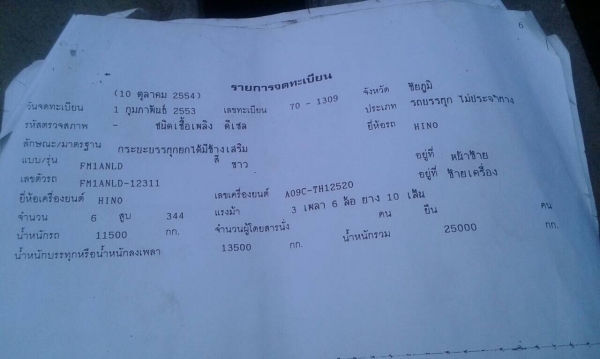 6
รายการจดทะเบียน
(10 ตุลาคม 2554)
วันจดทะเบียน 1 กุมภาพันธ์ 2553 เลขทะเบียน 70 - 1309 จังหวัด ชัยภูมิ
รหัสตรวจสภาพ - ชนิดเชื้อเพลิง ดีเซล ประเภท รถบรรทุก ไม่ประจำทาง
ลักษณะ/มาตรฐาน กระบะบรรทุกยกได้มีข้างเสริม ยี่ห้อรถ HINO
แบบ/รุ่น FM1ANLD สี ขาว
เลขตัวรถ FM1ANLD-12311 อยู่ที่ หน้าซ้าย
ยี่ห้อเครื่องยนต์ HINO เลขเครื่องยนต์ A09C-TH12520 อยู่ที่ ซ้ายเครื่อง
จำนวน 6 สูบ 344 แรงม้า 3 เพลา 6 ล้อ ยาง 10 เส้น
น้ำหนักรถ 11500 กก. จำนวนผู้โดยสารนั่ง คน ยืน คน
น้ำหนักบรรทุกหรือน้ำหนักลงเพลา 13500 กก. น้ำหนักรวม 25000 กก.